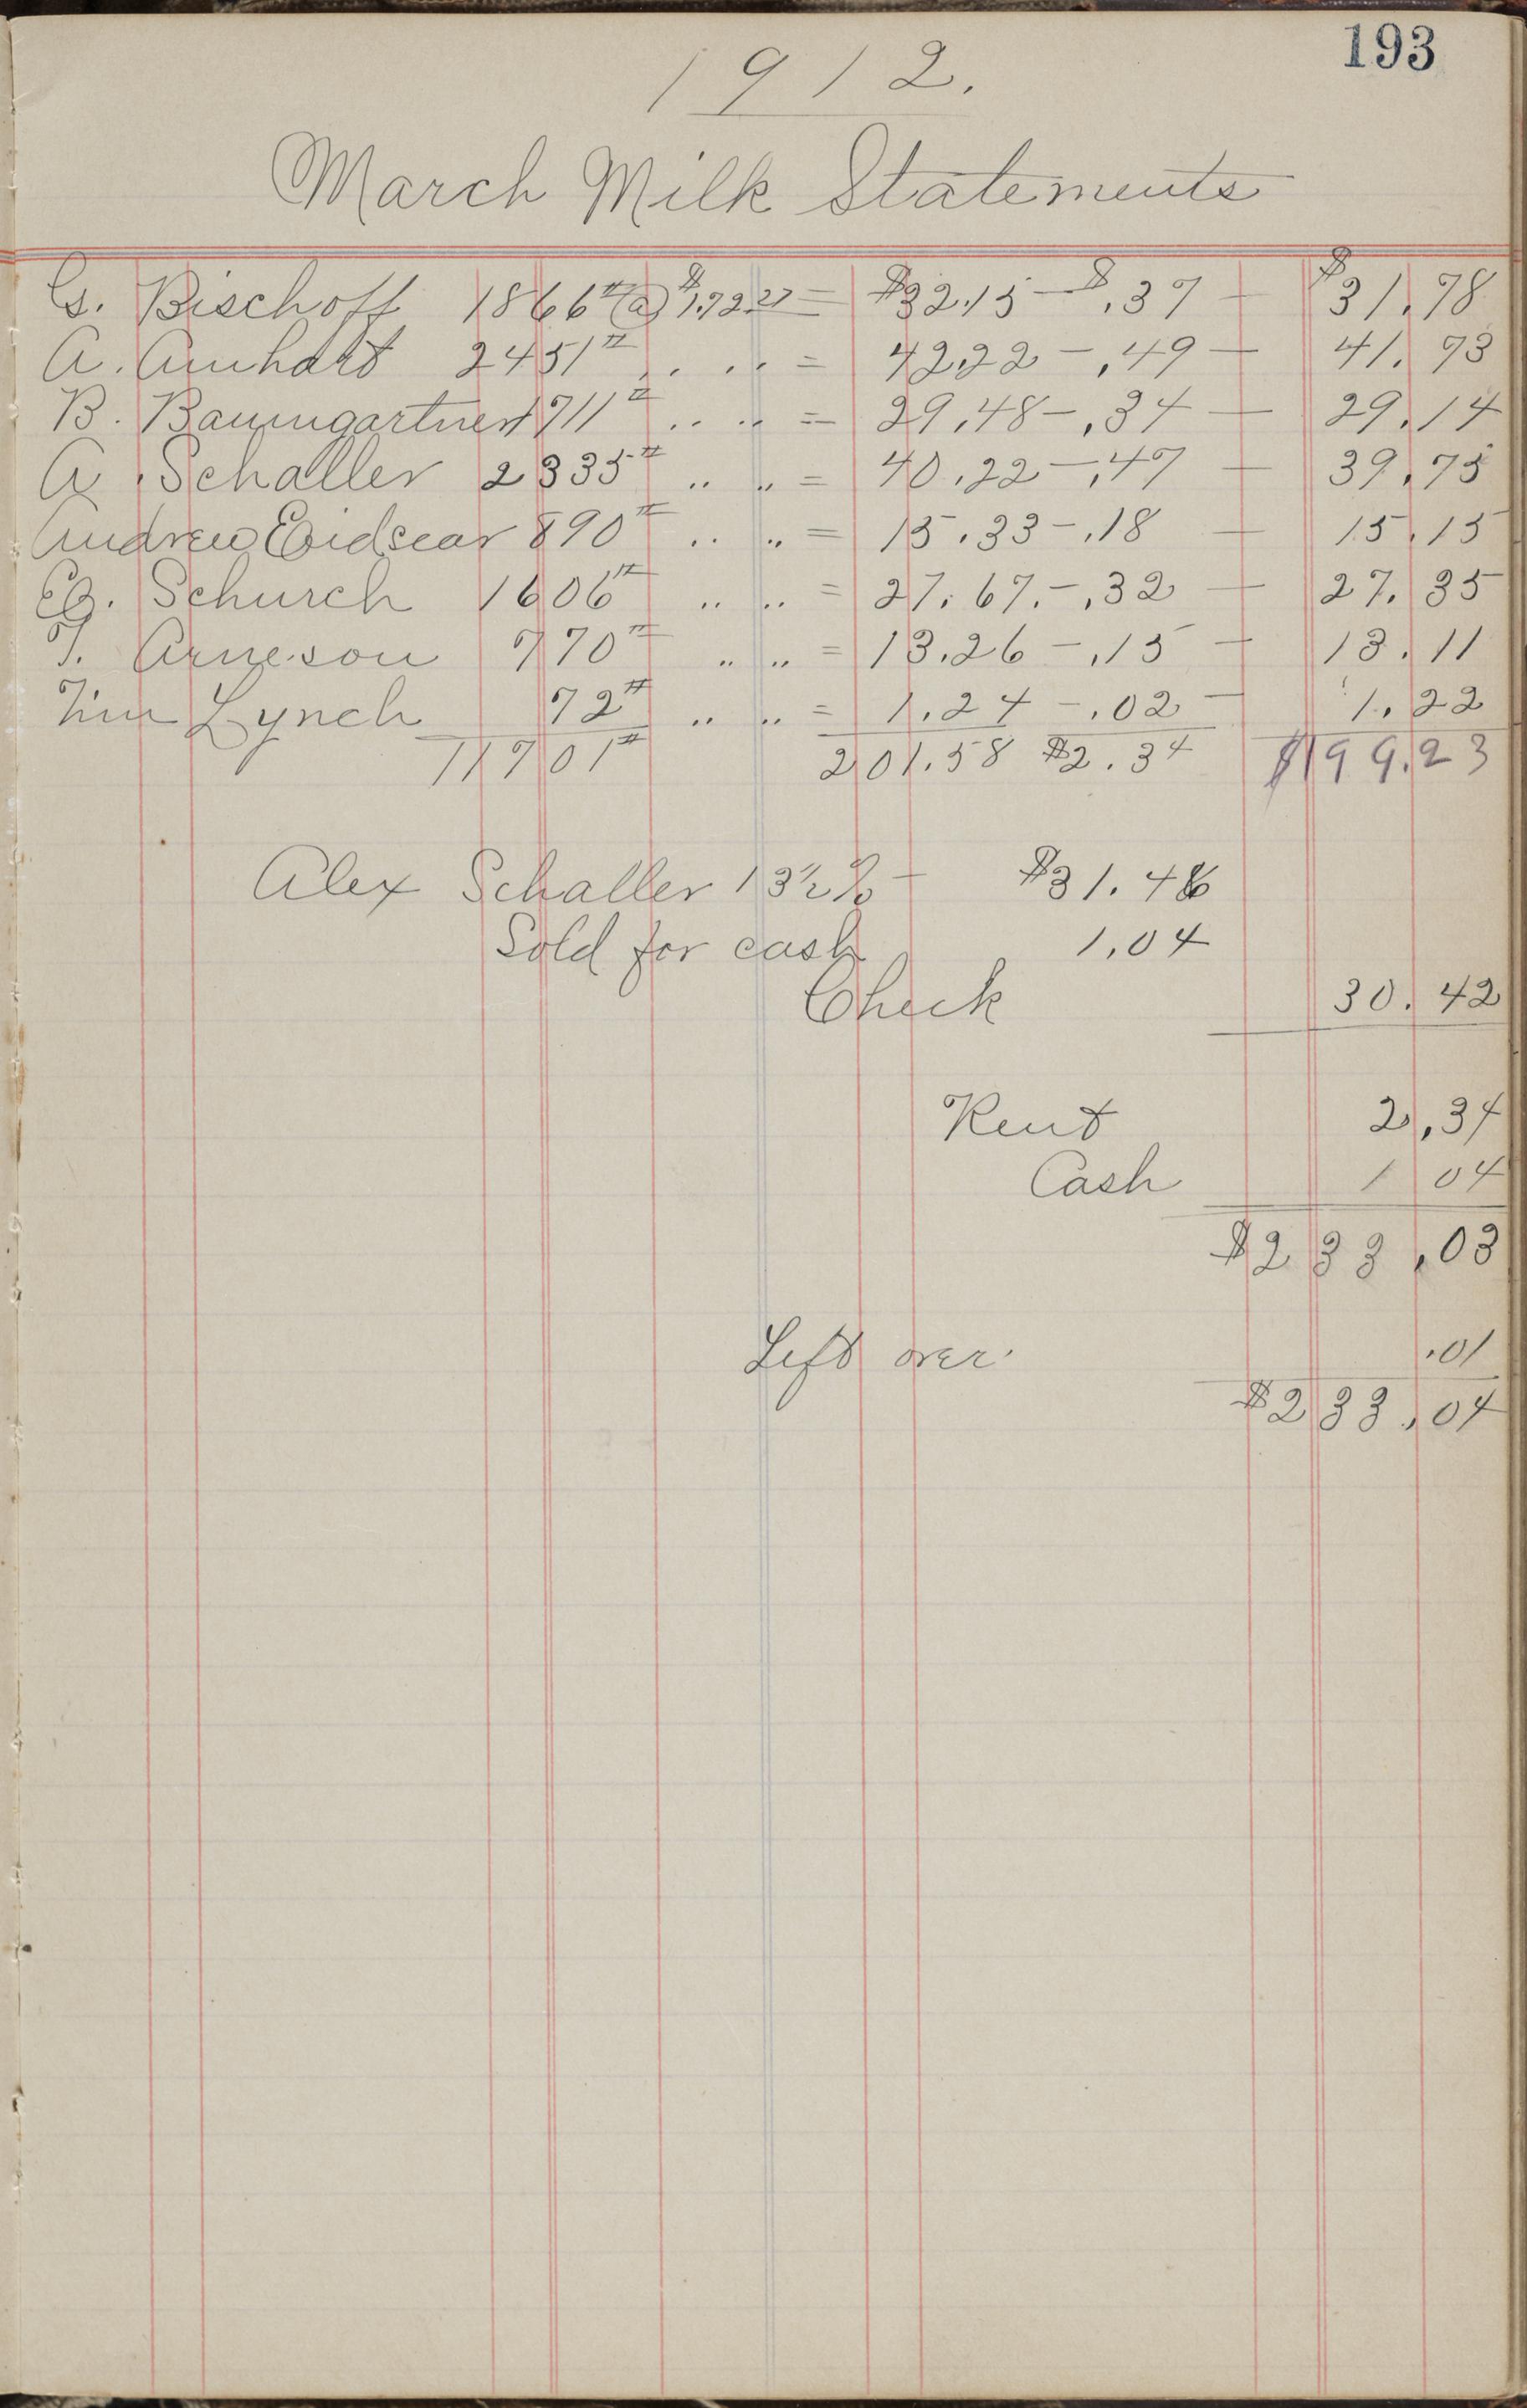 193
1912.
March Milk Statements
G. Bischoff 1866# @ $1.72.27 = $32.15 — $.37 — $31.78
A. Amhalt 2451# .. .. = 42.22 — .49 — 41.73
B. Baumgartner 1711# .. .. = 29.48 — .34 — 29.14
A. Schaller 2335# .. .. = 40.22 — .47 — 39.75
Andrew Eidsear 890# .. .. = 15.33 — .18 — 15.15
Schurch 1606# .. .. = 27.67. — .32 — 27.35
T. Arneson 770# .. .. = 13.26 — .15 — 13.11
Tim Lynch 72# .. .. = 1.24 — .02 — 1.22
11701# 201.58 $2.34 $199.23
Alex Schaller 13½% — $31.46
Sold for cash 1.04
Check 30.42
Rent 2.34
Cash 1 04
$233.03
Left over .01
$233.04